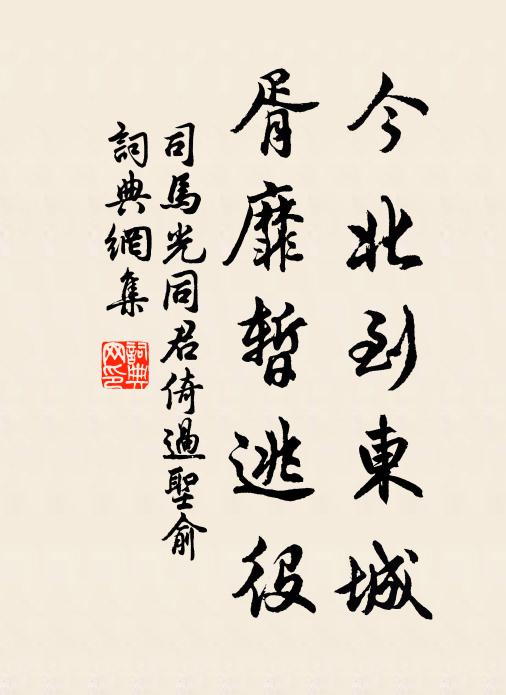 今北到東城
胥靡暫逃役
司馬光同君倚過聖俞
詞典網集
詞典網印